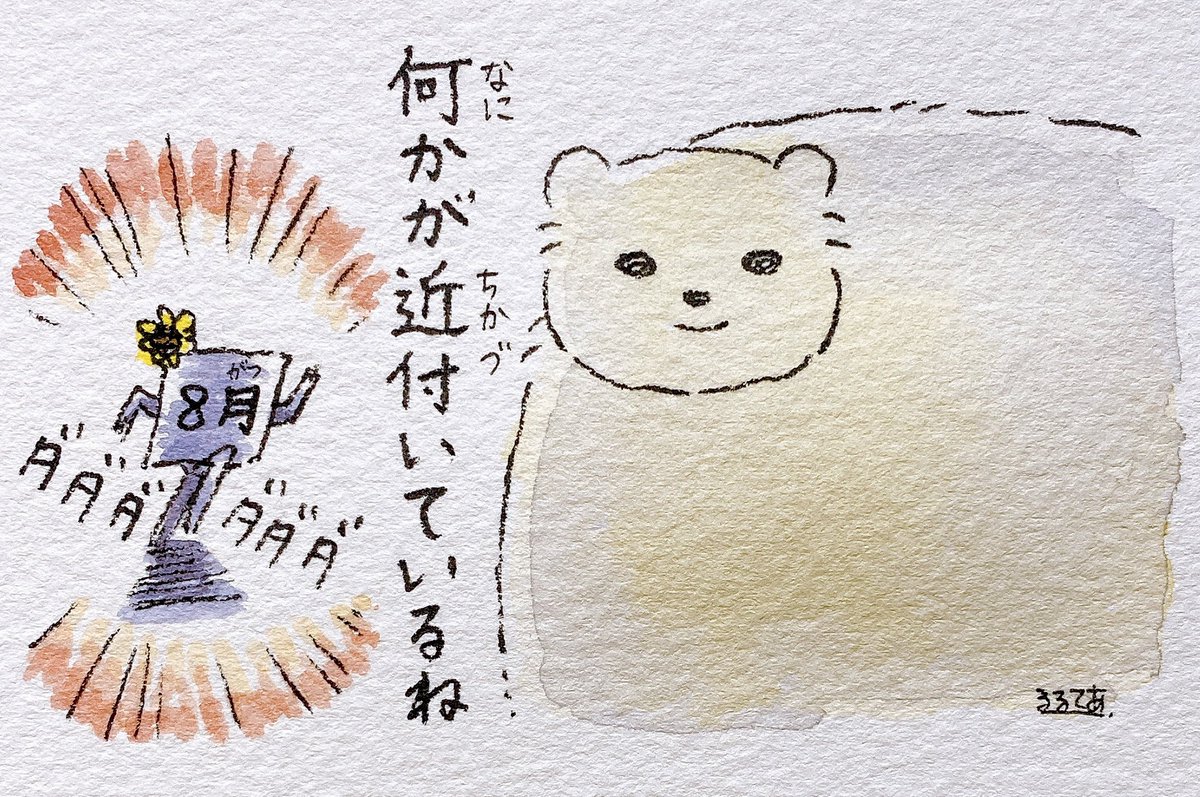 何かが近付いているね
なに
ちかづ
8月
がつ
ダダダ
ダダダ
るるてあ